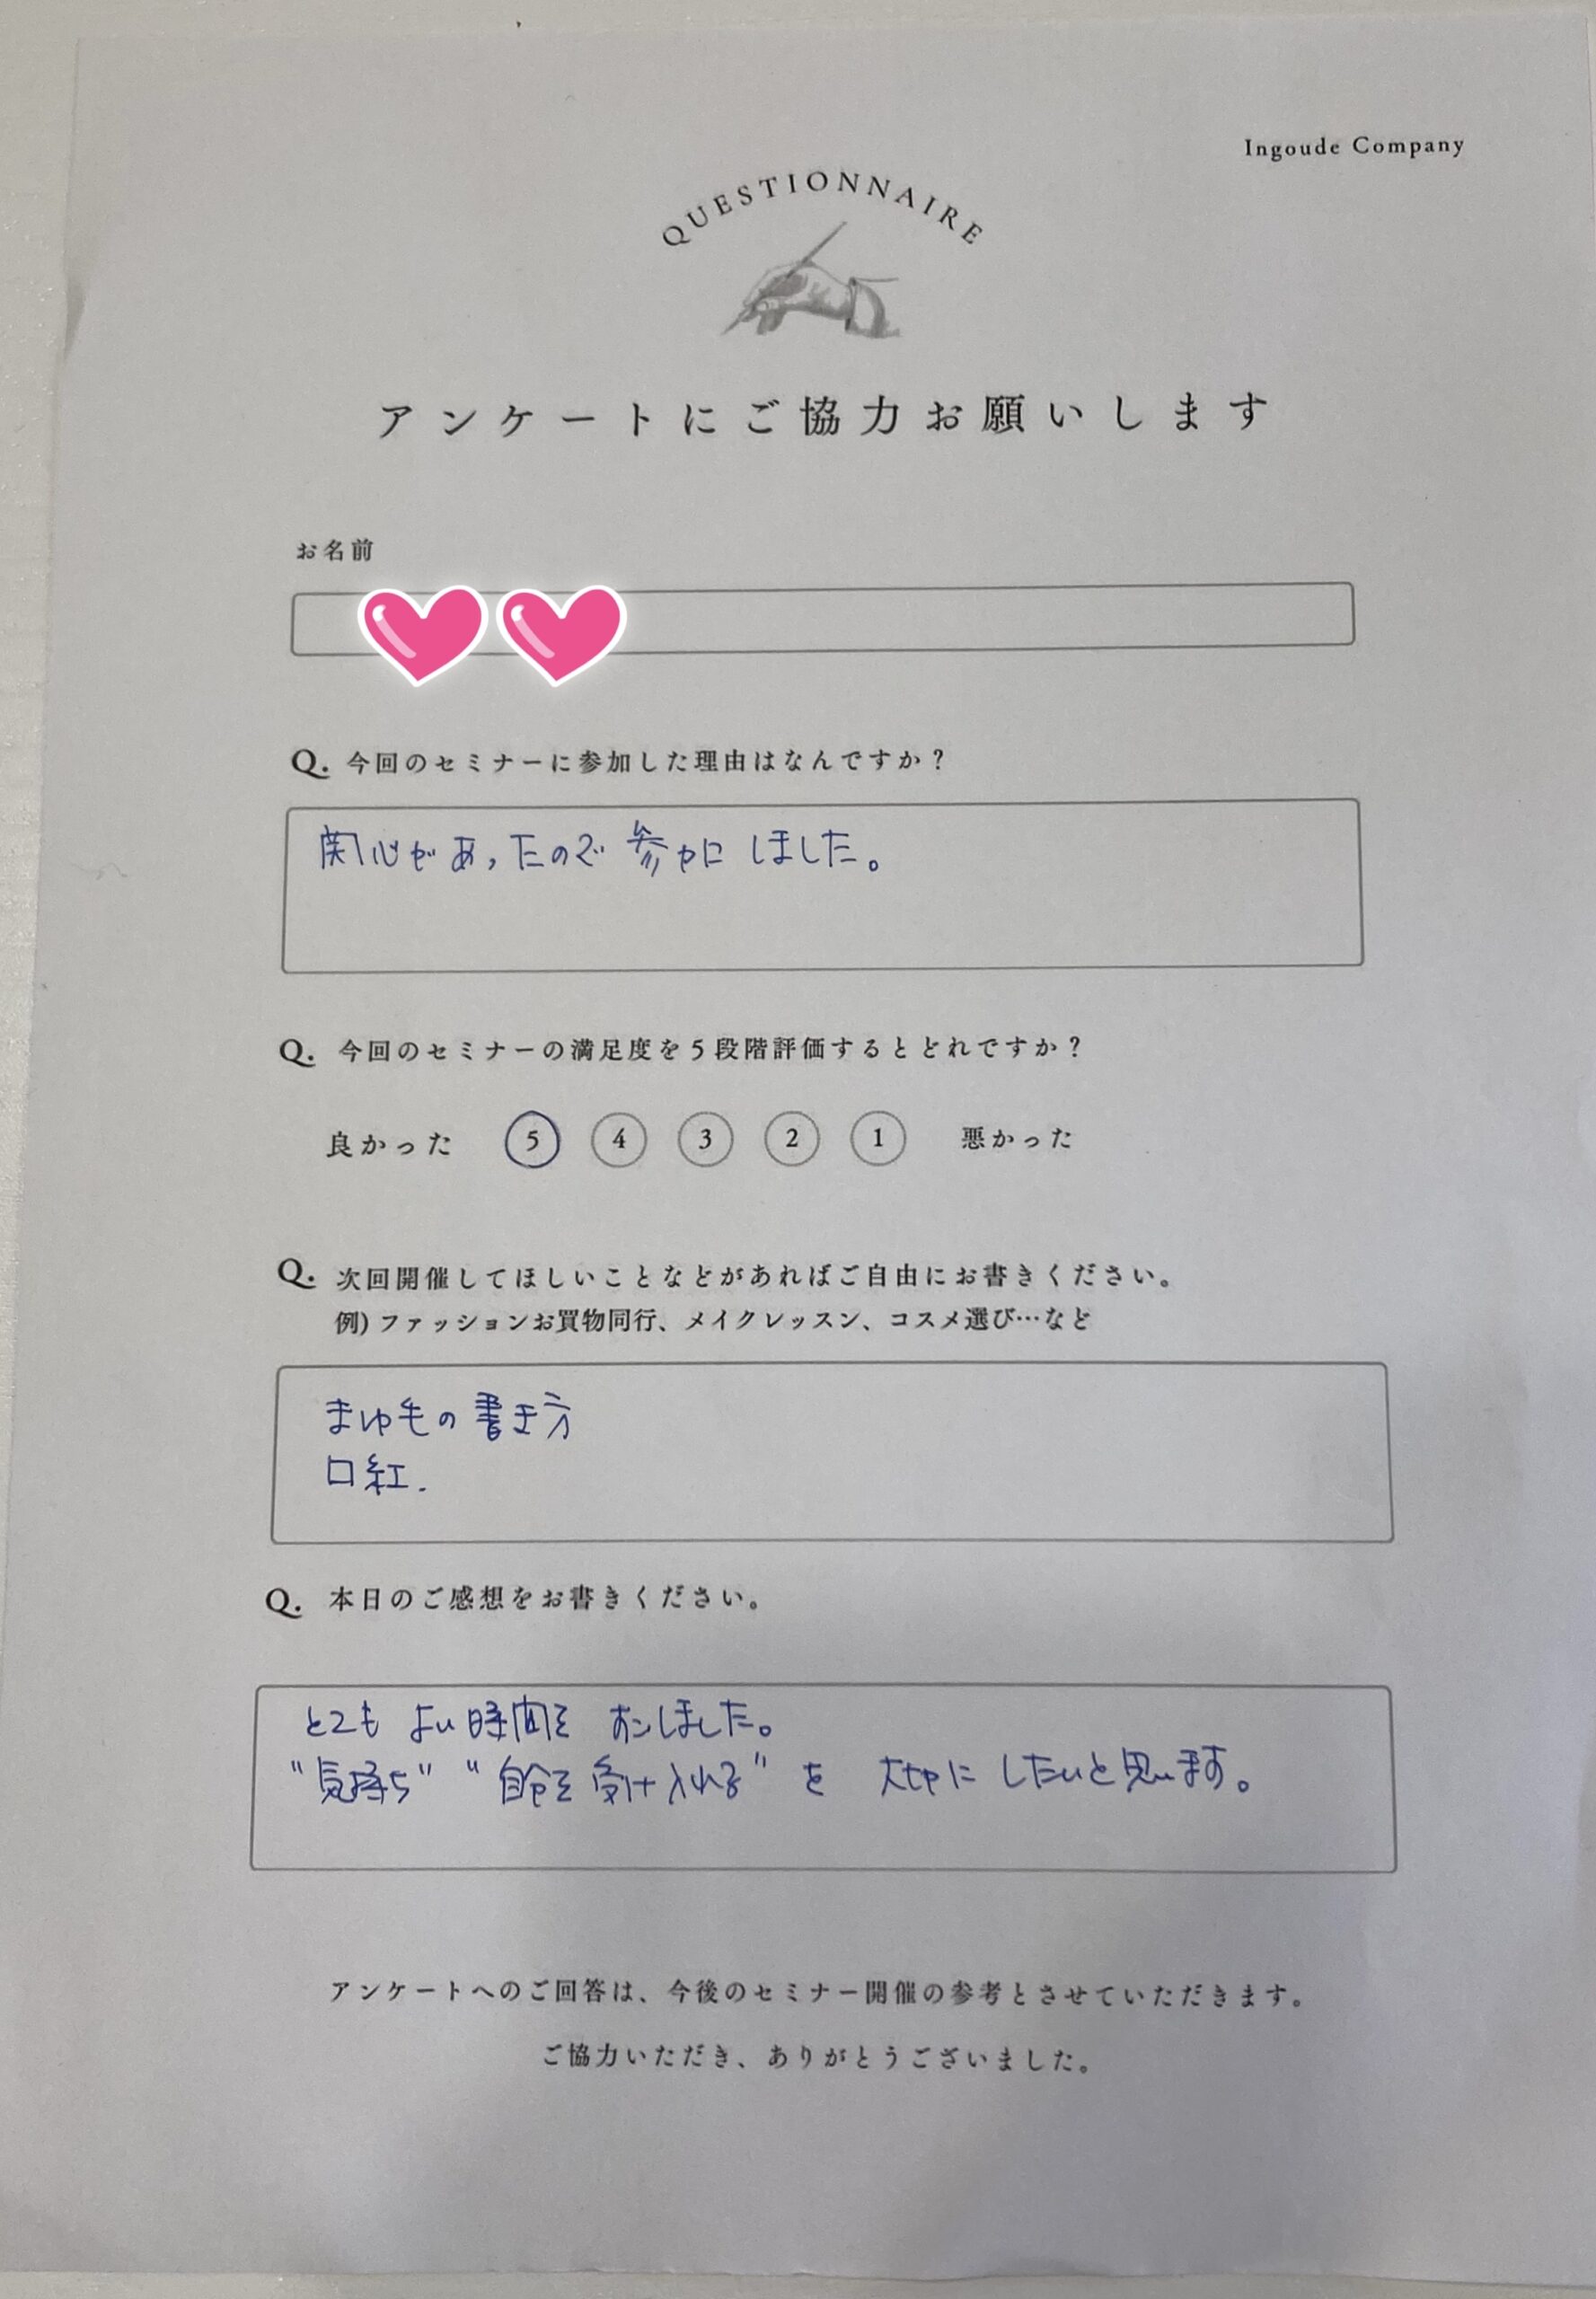 Ingoude Company
QUESTIONNAIRE
アンケートにご協力お願いします
お名前
Q. 今回のセミナーに参加した理由はなんですか？
関心があったので 参加 しました。
Q. 今回のセミナーの満足度を5段階評価するとどれですか？
良かった 5 4 3 2 1 悪かった
Q. 次回開催してほしいことなどがあればご自由にお書きください。
例) ファッションお買物同行、メイクレッスン、コスメ選び…など
まゆ毛の書き方
口紅.
Q. 本日のご感想をお書きください。
とても よい時間を しました。
"気持ち" "自分を受け入れる" を 大切に したいと思います。
アンケートへのご回答は、今後のセミナー開催の参考とさせていただきます。
ご協力いただき、ありがとうございました。